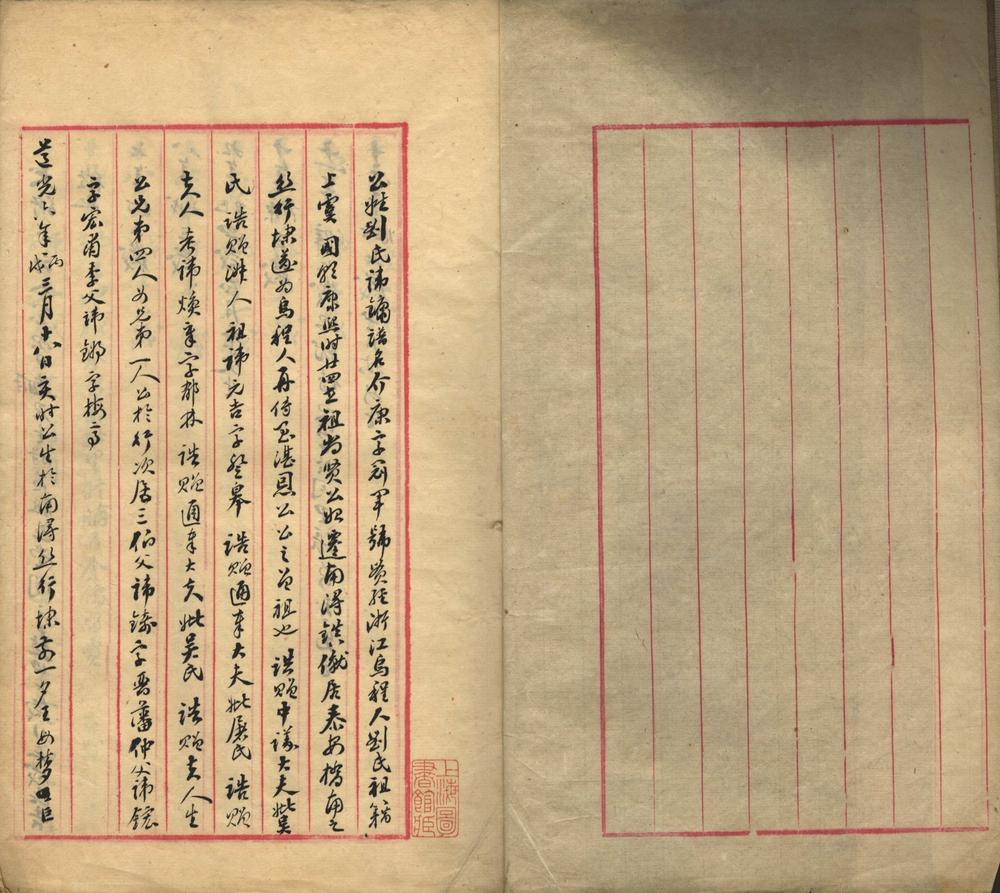 公姓劉氏諱鏞譜名介康字冠軍號貫經浙江烏程人劉氏祖籍
上虞 國朝康熙時廿四世祖尚賢公始遷南潯鎮僦居泰安橋南之
絲行埭遂為烏程人再傳至湛恩公公之曾祖也 誥贈中議大夫妣吳
氏 誥贈淑人祖諱元吉字登皋 誥贈通奉大夫妣屠氏 誥贈
夫人考諱煥章字郁林 誥贈通奉大夫妣吳氏 誥贈夫人生
公兄弟四人女兄弟一人公於行次居三伯父諱鏽字晋藩仲父諱鋐
字宏甫季父諱鏘字梅亭
道光六年丙戌三月十八日亥時公生於南潯絲行埭前一夕王母夢
上海圖書館藏